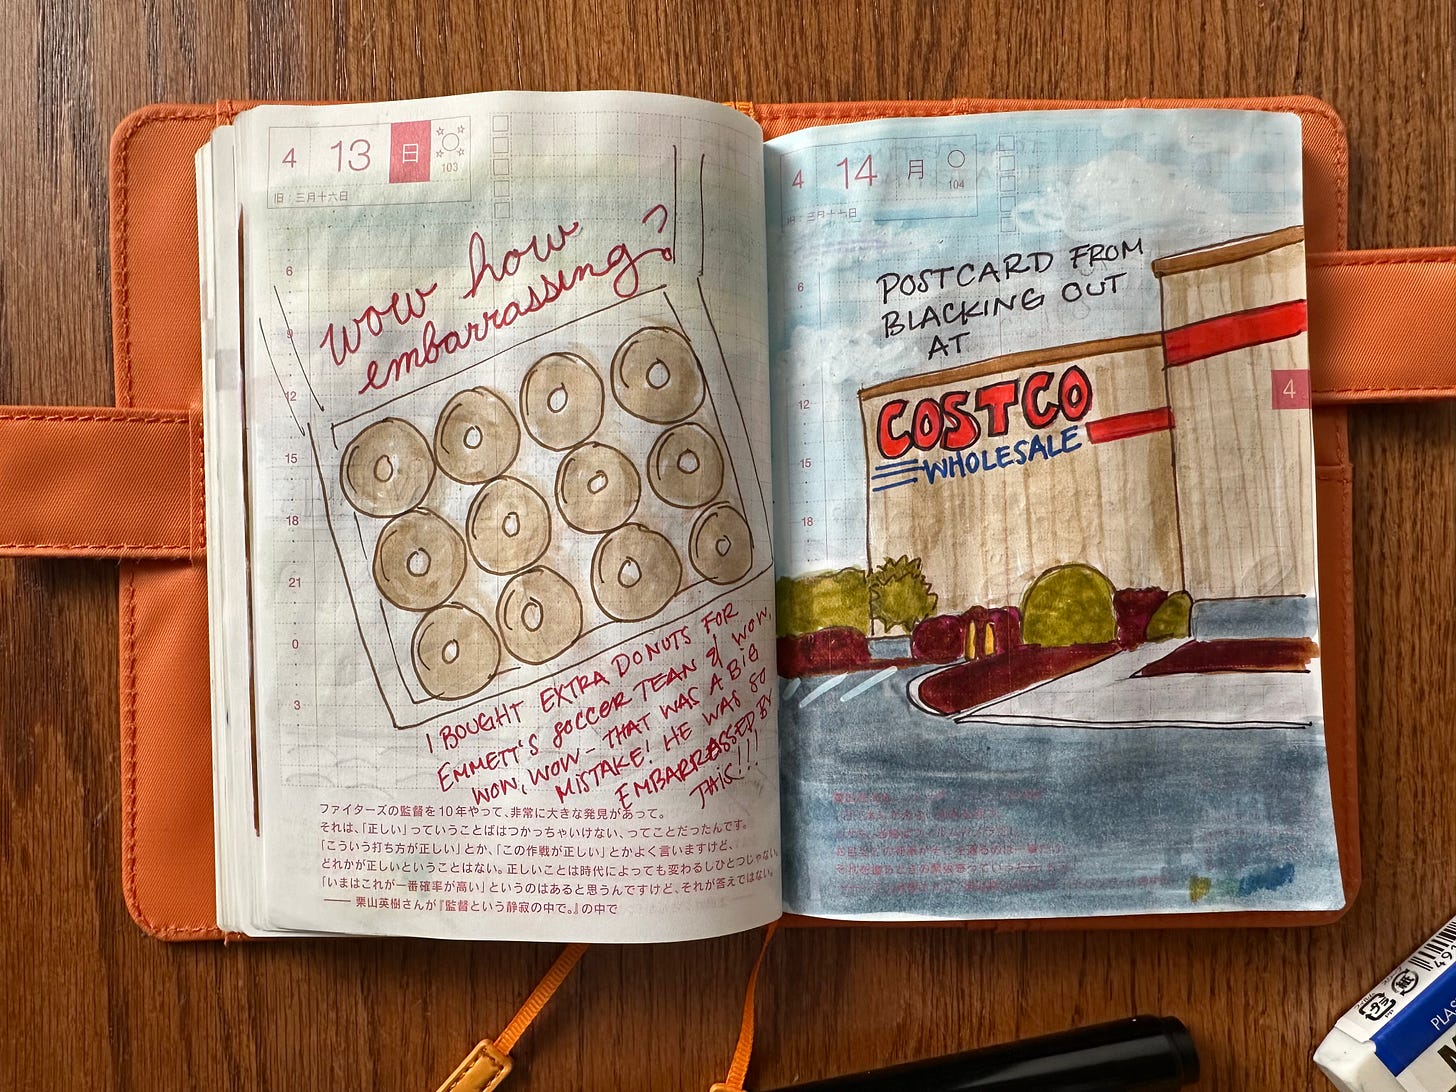 4 13 日
103
旧 三月十六日
wow how
embarrassing?
6
9
12
15
18
21
0
3
I BOUGHT EXTRA DONUTS FOR
EMMETT'S SOCCER TEAM & WOW,
WOW, WOW - THAT WAS A BIG
MISTAKE! HE WAS SO
EMBARRASSED BY
THIS!!!
ファイターズの監督を10年やって、非常に大きな発見があって。
それは、「正しい」っていうことばはつかっちゃいけない、ってことだったんです。
「こういう打ち方が正しい」とか、「この作戦が正しい」とかよく言いますけど、
どれかが正しいということはない。正しいことは時代によっても変わるしひとつじゃない。
「いまはこれが一番確率が高い」というのはあると思うんですけど、それが答えではない。
—— 栗山英樹さんが『監督という静寂の中で。』の中で
4 14 月
104
旧 三月十七日
POSTCARD FROM
BLACKING OUT
AT
COSTCO
WHOLESALE
6
12
15
18
4
PLAS